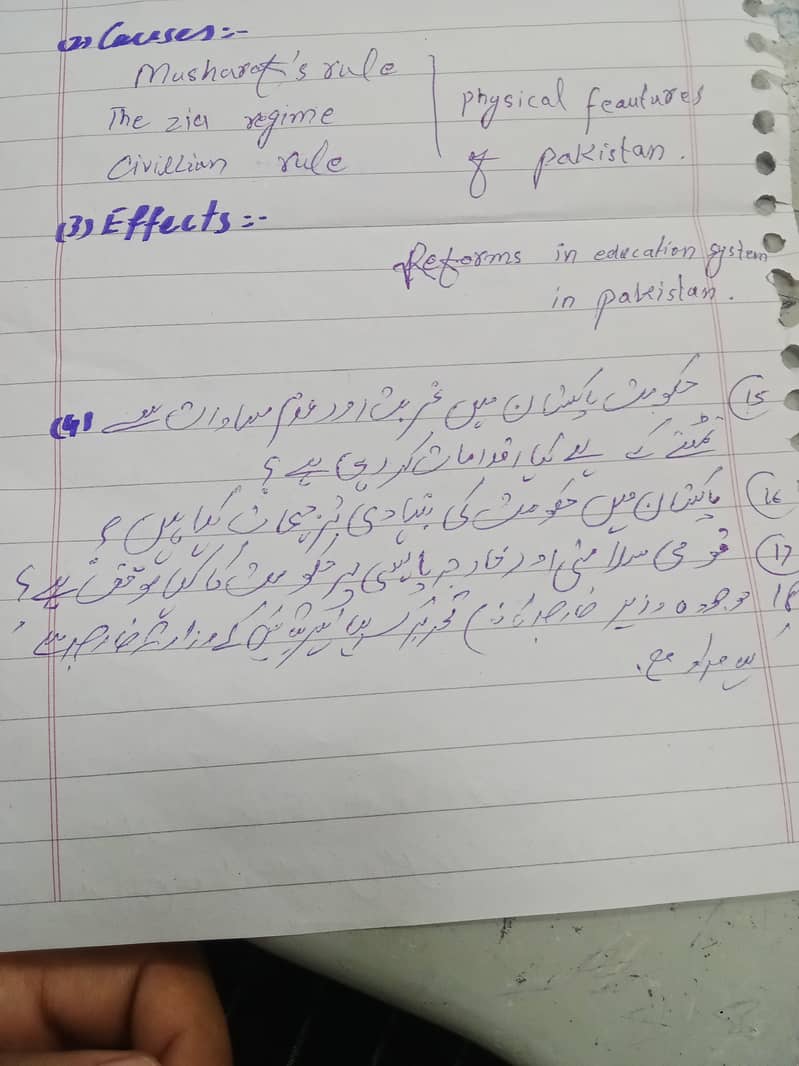 (2) Causes:-
Musharaf's rule
The zia regime
Civillian rule
physical feautures
of pakistan.
(3) Effects:-
Reforms in education system
in pakistan.
(4) (15) حکومت پاکستان میں غربت اور عدم مساوات سے
نمٹنے کے لیے کیا اقدامات کر رہی ہے؟
(16) پاکستان میں حکومت کی بنیادی ترجیحات کیا ہیں؟
(17) قومی سلامتی اور خارجہ پالیسی پر حکومت کا کیا موقف ہے؟
18 موجودہ وزیر خارجہ کے وزارت خارجہ